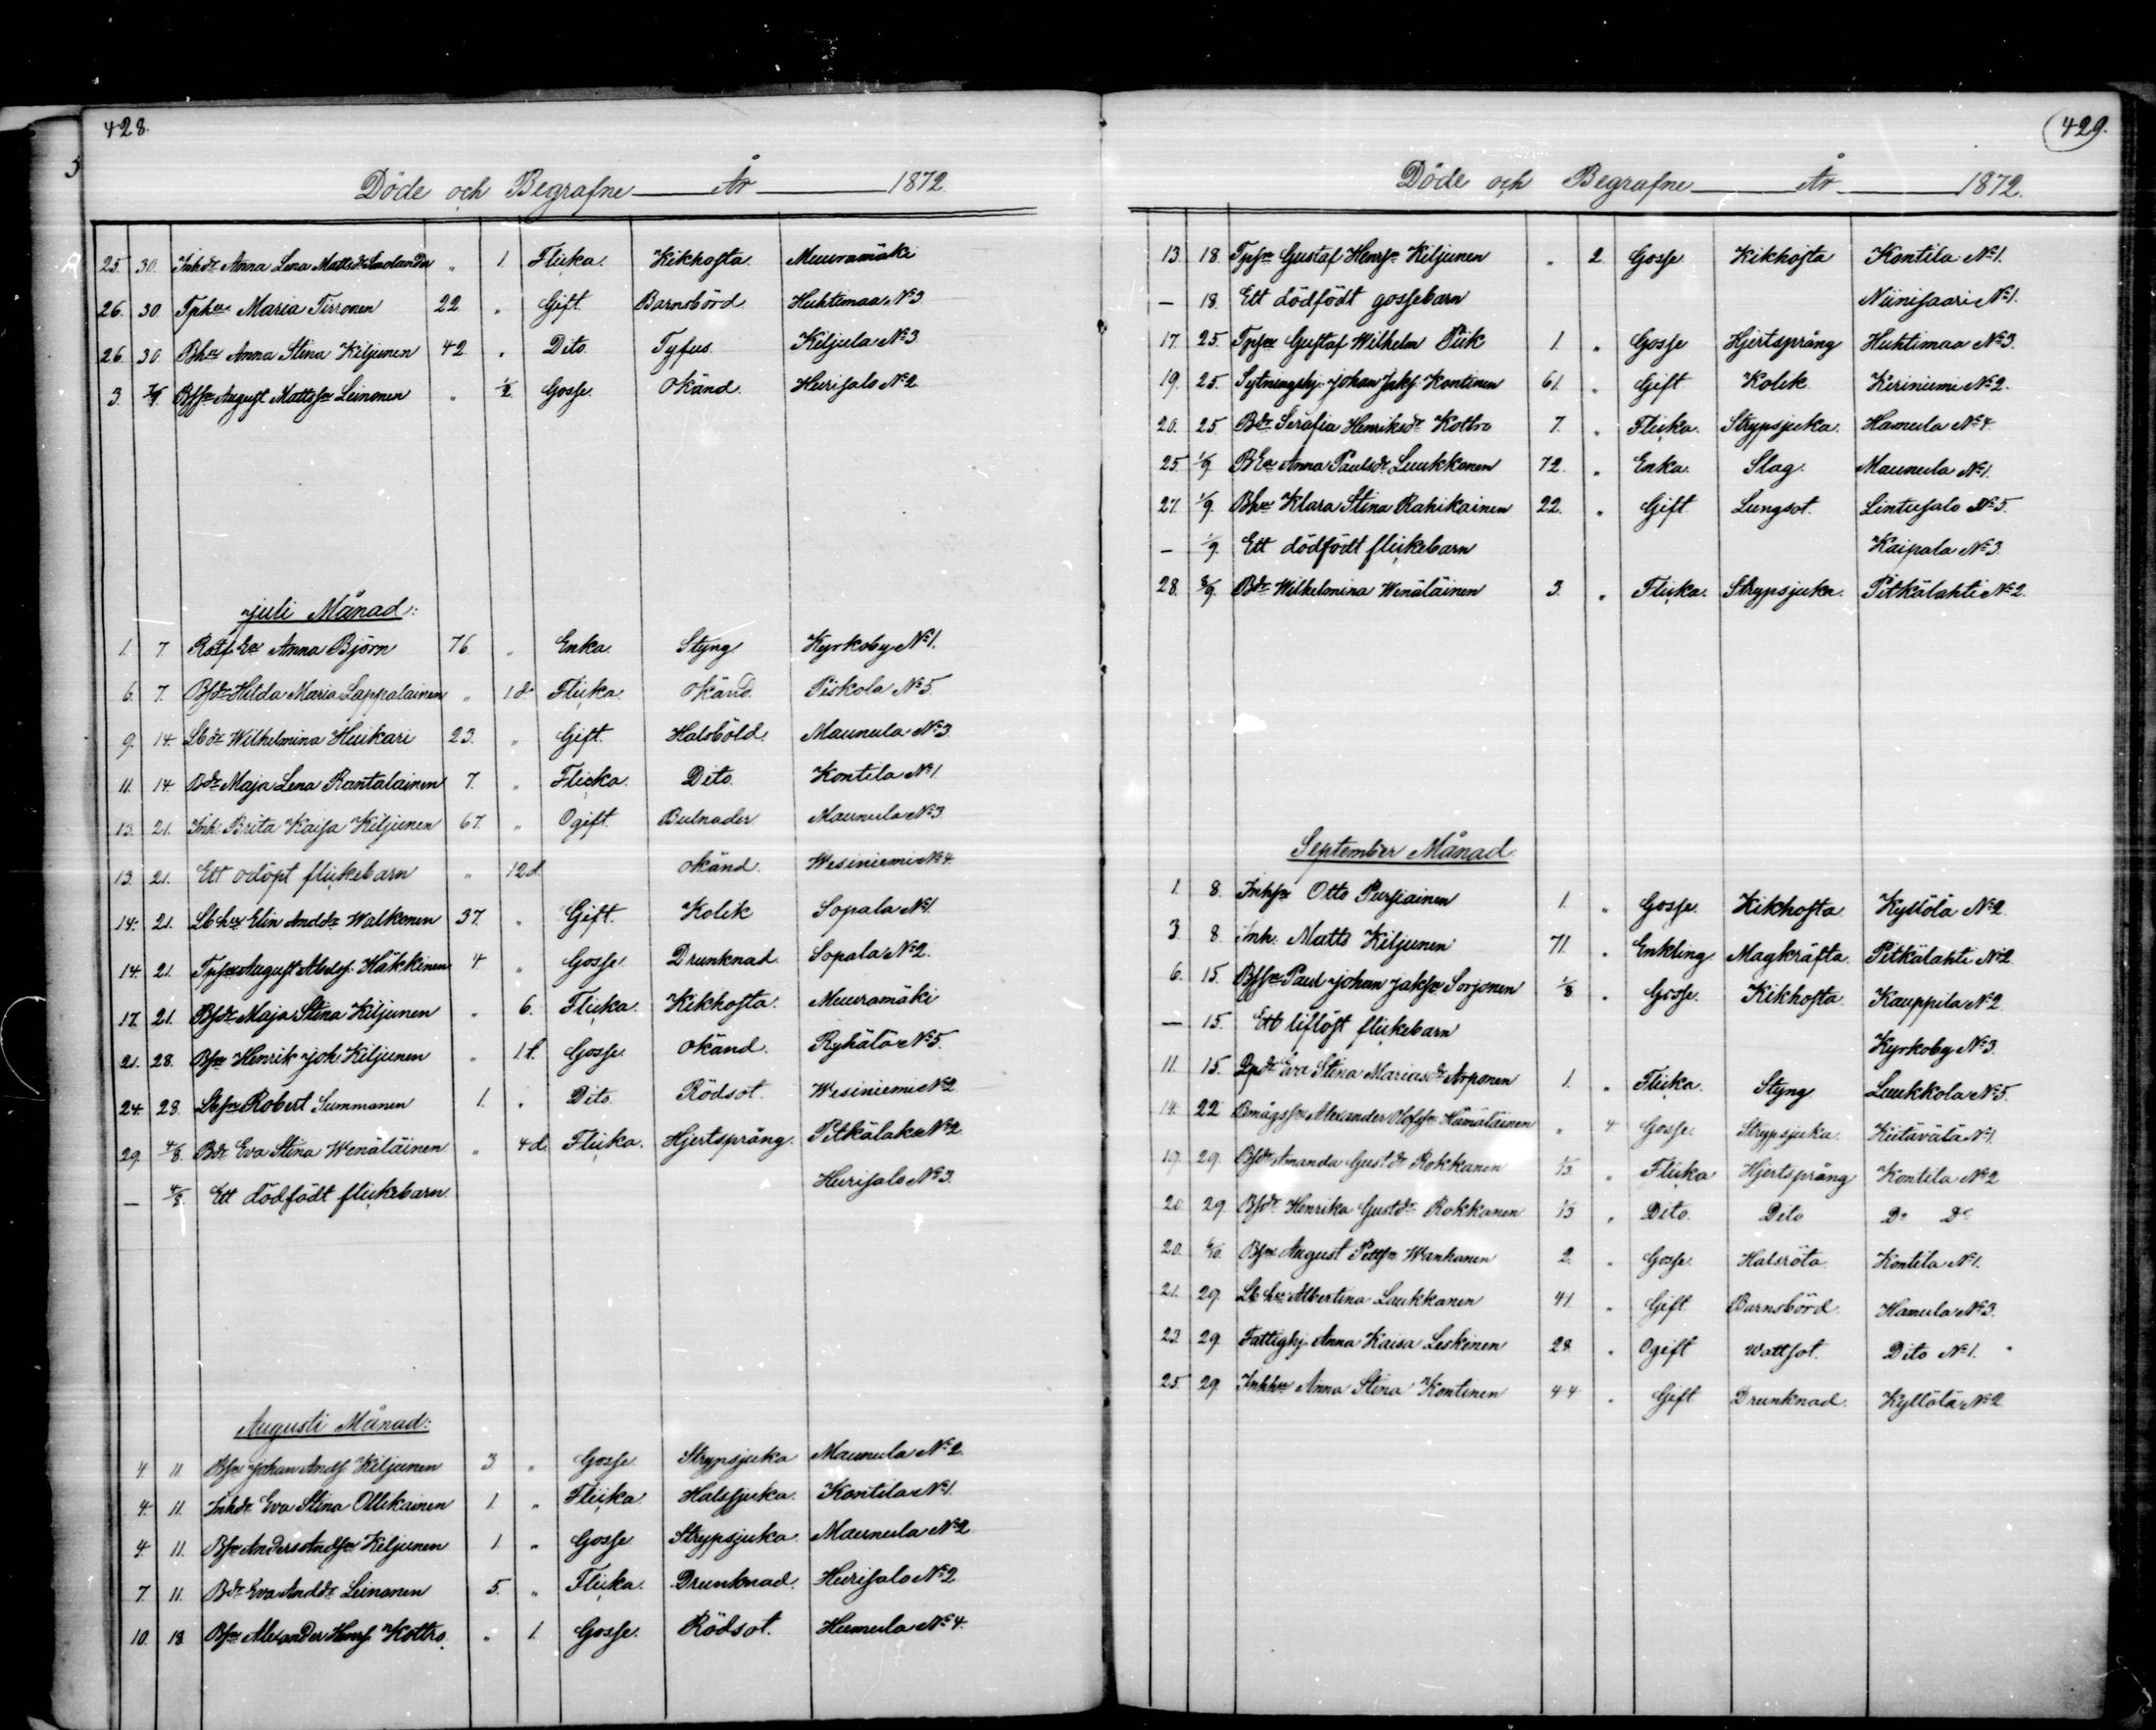 428.
Döde och Begrafne År 1872.
25. 30. Inhdr Anna Lena Mattsdr Smolander " 1. Flicka. Kikhosta. Muuramäki
26. 30. Tphu Maria Tirronen 22 " Gift. Barnsbörd. Huhtimaa No 3
26. 30 Bhu Anna Stina Kiljunen 42 " Dito. Tyfus Kiljula No 3
3. 7/7. Bssn August Mattsson Leinonen " 1/2 Gosse. Okänd. Hurisalo No 2
Juli Månad:
1. 7 Enka Anna Björn 76. " Enka. Styng Kyrkoby No 1.
6. 7. Bsdr Hilda Maria Lappalainen " 1 d. Flicka. Okänd. Piskola No 5.
9. 14. Lbdr Wilhelmina Heikari 23. " Gift. Halsböld. Maunula No 3
11. 14 Bdr Maja Lena Rantalainen 7. " Flicka. Dito. Kontila No 1
13. 21. Inh. Brita Kaisa Kiljunen 67. " Ogift. Bulnader Maunula No 3
13. 21. Ett odöpt flickebarn " 12 d. Okänd. Wesiniemi No 4.
14. 21. Lbhu Elin Anddr Walkonen 37. " Gift. Kolik Sopala No 1.
14. 21. Tpsn August Häkkinen 4 " Gosse. Drunknad. Sopala No 2.
17. 21. Bsdr Maja Stina Kiljunen " 6. Flicka. Kikhosta. Muuramäki
21. 28. Bsn Henrik Joh. Kiljunen " 1 t. Gosse. Okänd. Ryhälä No 5.
24. 28. Lbsn Robert Summanen 1. " Dito. Rödsot. Wesiniemi No 2
29. 4/8. Bdr Eva Stina Wenäläinen " 4 d. Flicka. Hjertsprång. Pitkälaks No 2
— 4/8. Ett dödfödt flickebarn. Hurisalo No 3.
Augusti Månad:
4 11 Bsn Johan Ands. Kiljunen 3 " Gosse Strypsjuka Maunula No 2.
4. 11. Inhdr Eva Stina Ollikainen 1. " Flicka. Halssjuka. Kontila No 1
4. 11. Bsn Anders Andsn Kiljunen 1. " Gosse Strypsjuka. Maunula No 2
7. 11. Bdr Eva Anddr Leinonen 5. " Flicka. Drunknad. Hurisalo No 2
10. 18 Bsn Alexander Henrs. Kottro " 1. Gosse. Rödsot. Hamula No 4.
429.
Döde och Begrafne År 1872.
13. 18. Tpsn Gustaf Henrsn Kiljunen " 2 Gosse Kikhosta Kontila No 1.
— 18. Ett dödfödt gossebarn Niinisaari No 1.
17. 25. Tpsn Gustaf Wilhelm Piik 1. " Gosse Hjertsprång Huhtimaa No 3.
19. 25. Sytningshj. Johan Jaks. Kontinen 61. " Gift Kolik Kiriniemi No 2.
20. 25. Bdr Serafia Henriksdr Kottro 7. " Flicka. Strypsjuka. Hamula No 4.
25 1/9 BEa Anna Paulsdr Luukkonen 72. " Enka. Slag. Maunula No 1.
27. 1/9. Bhu Klara Stina Rahikainen 22. " Gift Lungsot. Lintusalo No 5.
— 1/9. Ett dödfödt flickebarn Kaipala No 3.
28. 8/9. Bdr Wilhelmina Wenäläinen 3. " Flicka. Strypsjuka. Pitkälahti No 2.
September Månad
1. 8. Inhsn Otto Pursiainen 1. " Gosse. Kikhosta. Kyllölä No 2.
3. 8. Inh. Matts Kiljunen 71. " Enkling Magkräfta. Pitkälahti No 2
6. 15. Bssn Paul Johan Jaksn Sorjonen 1/3 " Gosse. Kikhosta. Kauppila No 2
— 15. Ett liflöst flickebarn Kyrkoby No 3.
11. 15. Eva Stina Mariasdr Arponen 1. " Flicka. Styng Luukkola No 5.
14. 22 Bmågssn Alexander Olofsn Hämäläinen " 4 Gosse. Strypsjuka. Kietävälä No 1
19. 29. Bsdr Amanda Gustdr Rokkanen 1/3 " Flicka Hjertsprång Kontila No 2
20. 29 Bsdr Henrika Gustdr Rokkanen 1/3 " Dito. Dito Do Do
20. 6/10. Bsn August Pettsn Wanhanen 2. " Gosse. Halsröta. Kontila No 1.
21. 29. Lbhu Albertina Luukkanen 41. " Gift. Barnsbörd. Hamula No 3.
23. 29. Fattighj. Anna Kaisa Leskinen 28 " Ogift Wattsot. Dito No 1.
25. 29. Inhhu Anna Stina Kontinen 44 " Gift Drunknad. Kyllölä No 2